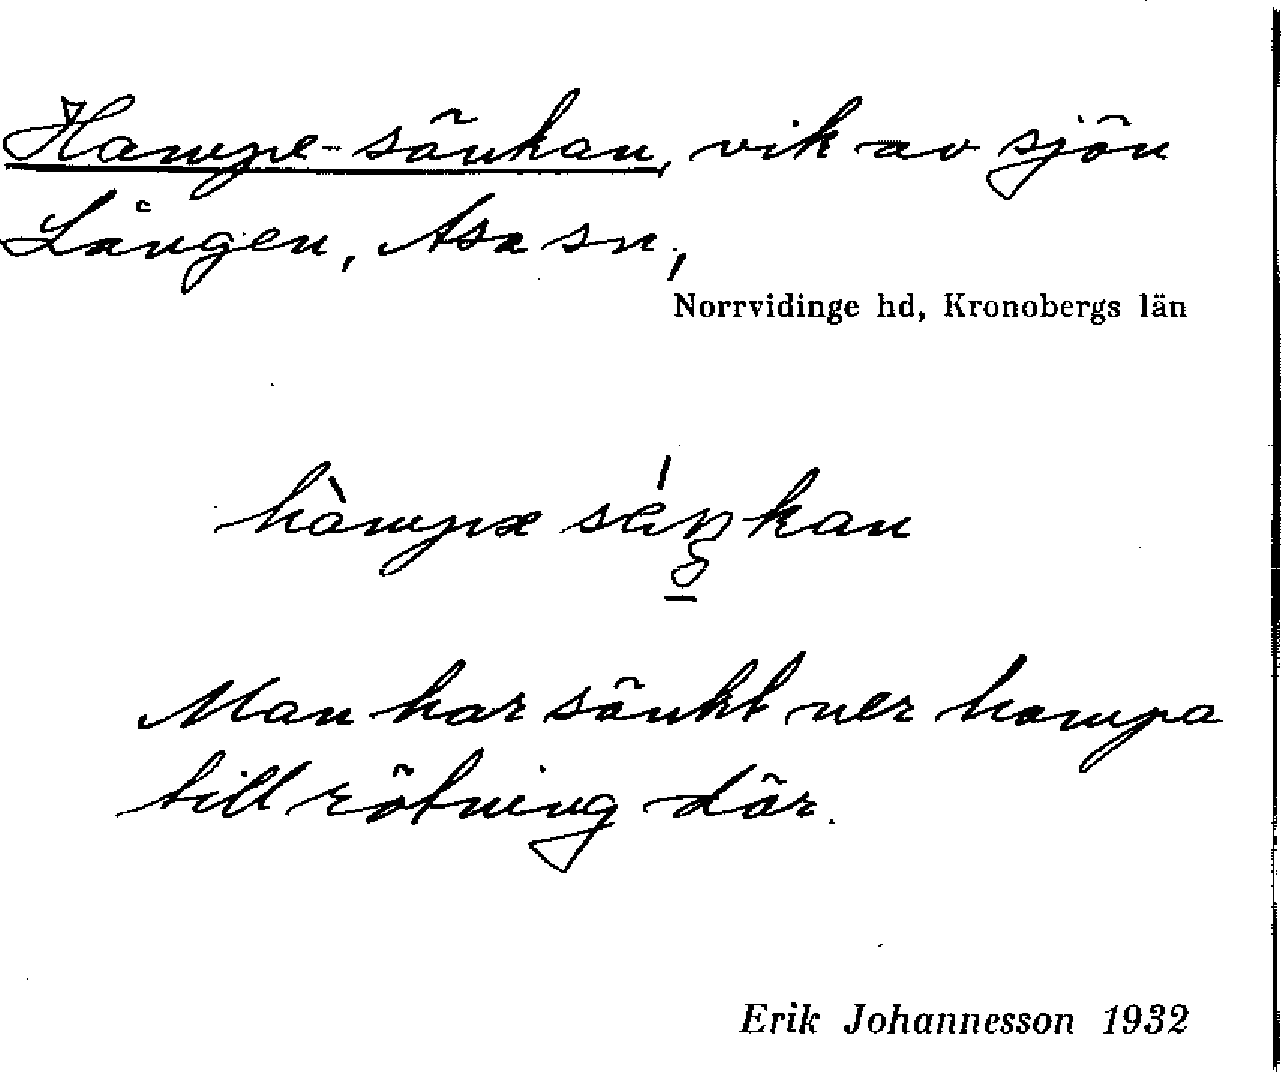 Hampe-sänkan, vik av sjön
Lången, Asa sn,
Norrvidinge hd, Kronobergs län
hàmpæ sáŋkan
Man har sänkt ner hampa
till rötning där.
Erik Johannesson 1932